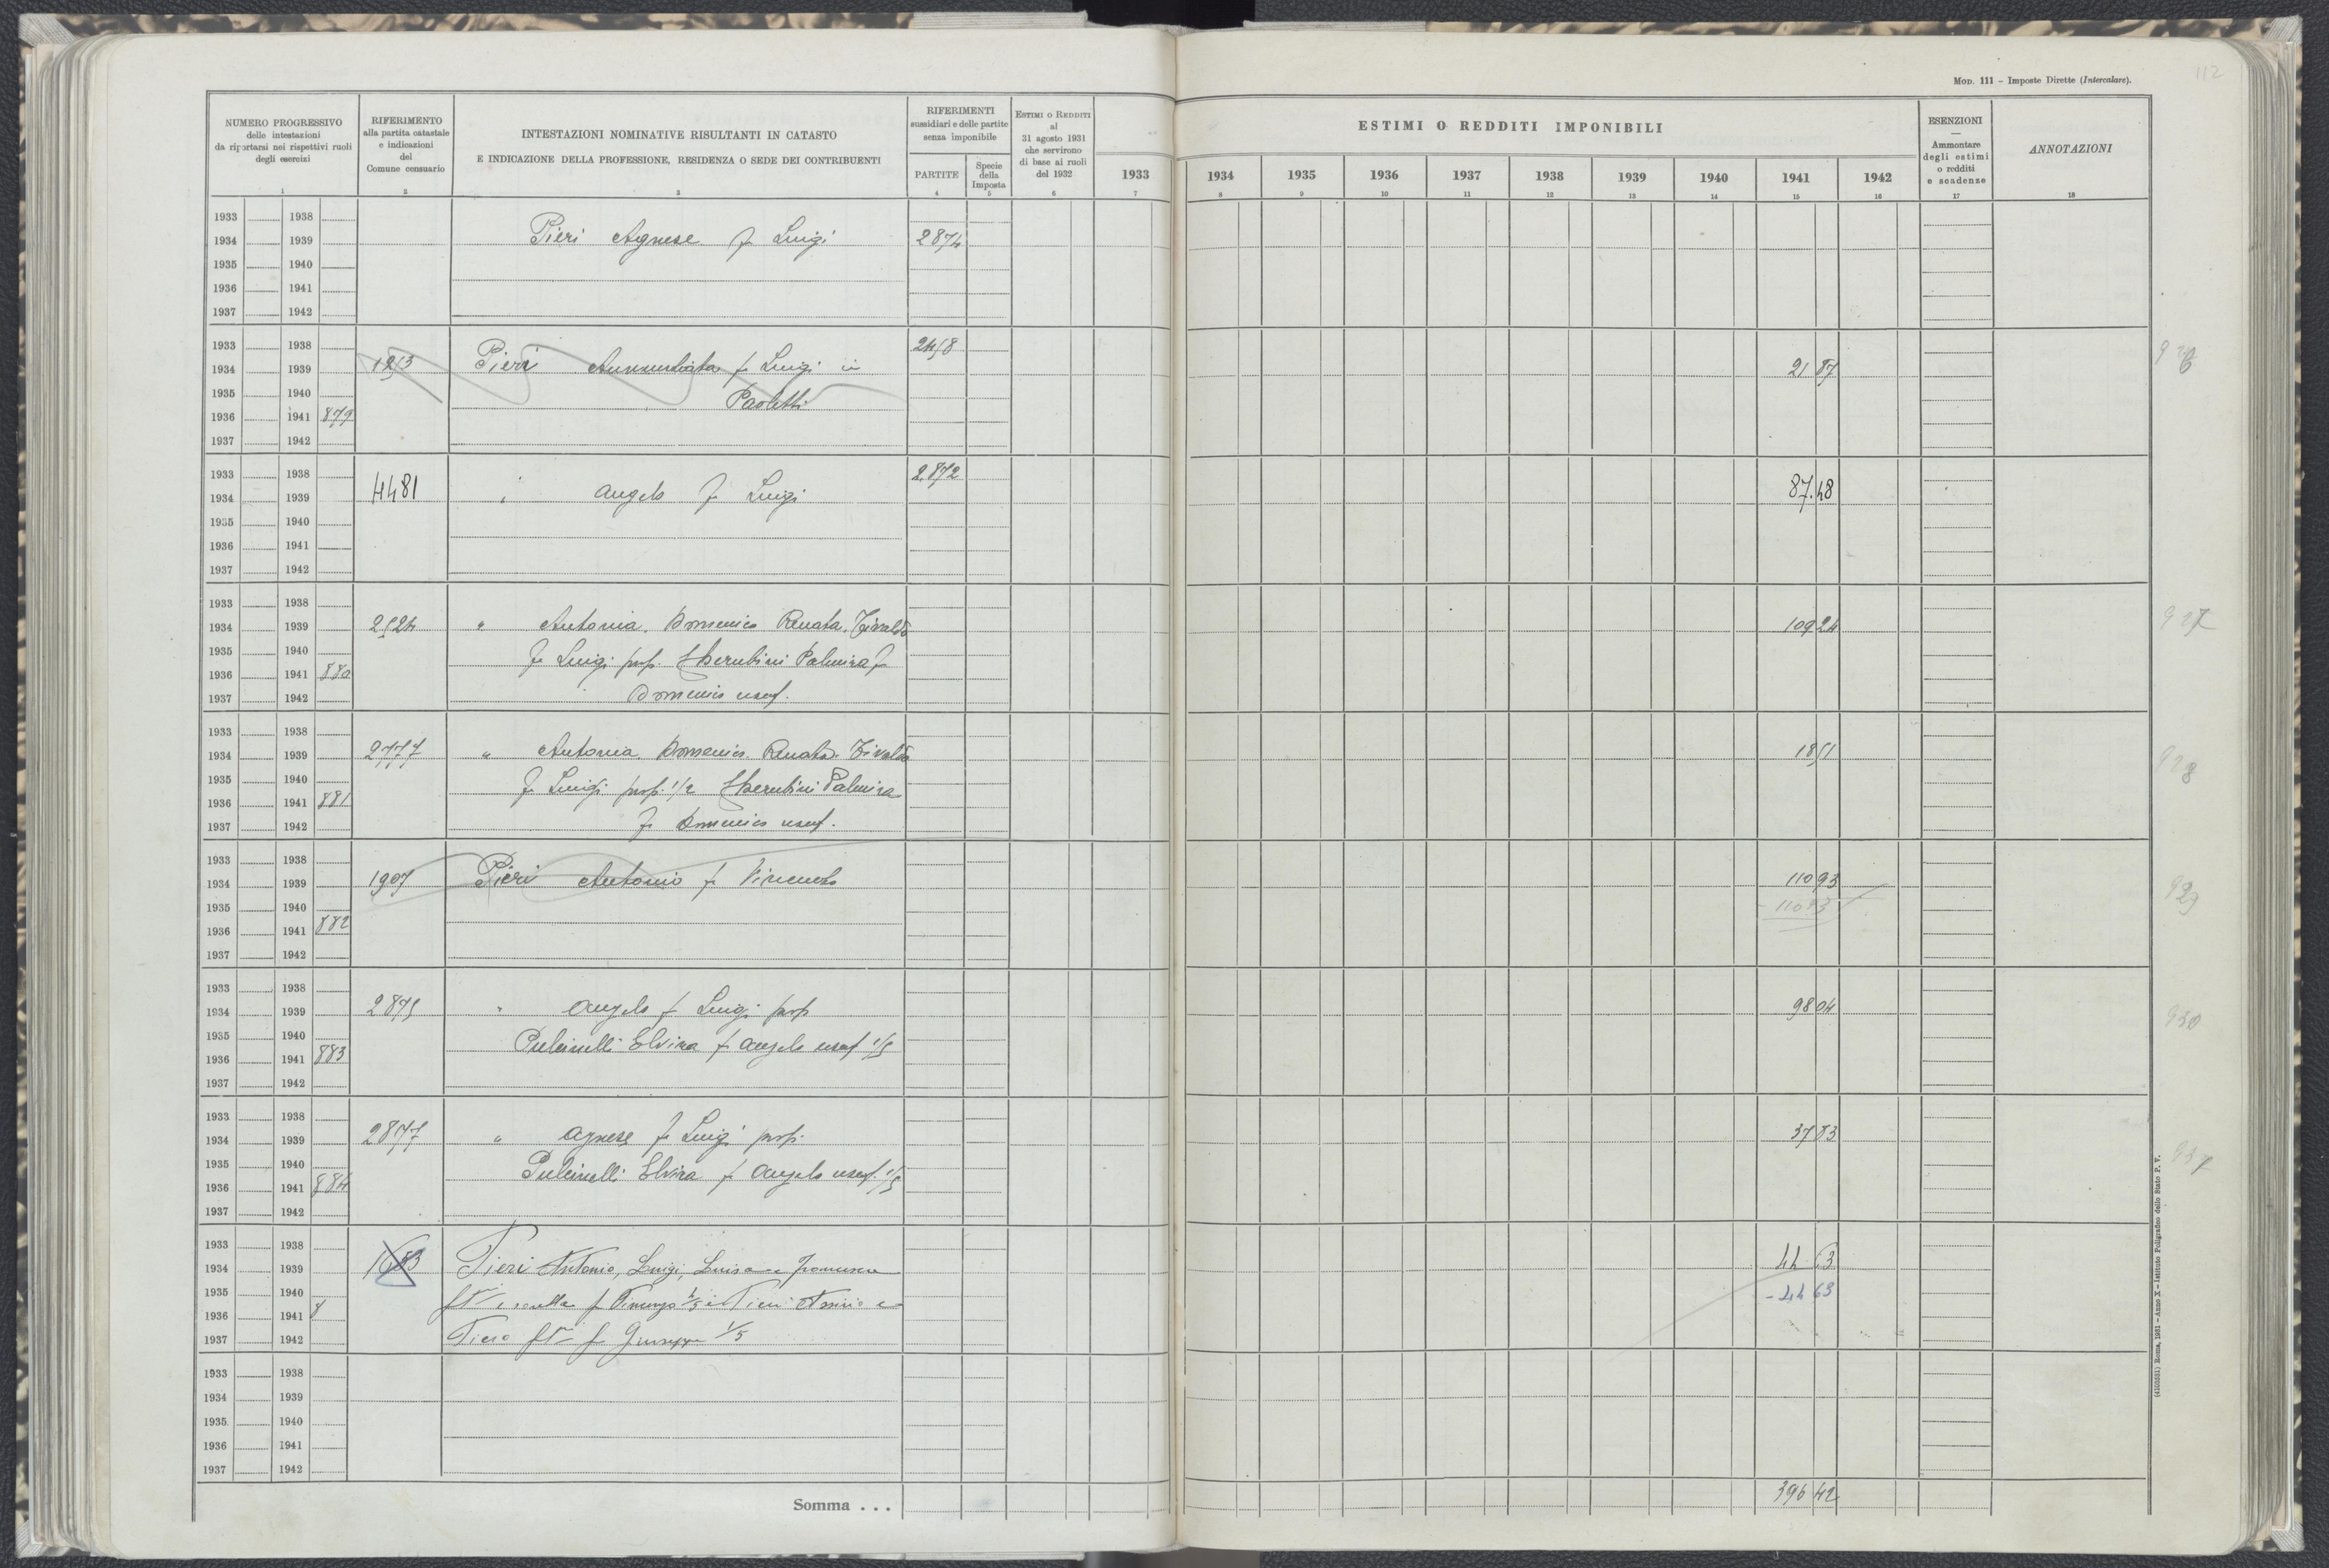 Mod. 111 – Imposte Dirette (Intercalare).
112
NUMERO PROGRESSIVO delle intestazioni da riportarsi nei rispettivi ruoli degli esercizi
RIFERIMENTO alla partita catastale e indicazioni del Comune censuario
INTESTAZIONI NOMINATIVE RISULTANTI IN CATASTO
E INDICAZIONE DELLA PROFESSIONE, RESIDENZA O SEDE DEI CONTRIBUENTI
RIFERIMENTI sussidiari e delle partite senza imponibile
PARTITE
Specie della Imposta
ESTIMI O REDDITI al 31 agosto 1931 che servirono di base ai ruoli del 1932
ESTIMI O REDDITI IMPONIBILI
1933 1934 1935 1936 1937 1938 1939 1940 1941 1942
ESENZIONI — Ammontare degli estimi o redditi e scadenze
ANNOTAZIONI
1 2 3 4 5 6 7 8 9 10 11 12 13 14 15 16 17 18
1933 1938
1934 1939 Pieri Agnese f Luigi 2874
1935 1940
1936 1941
1937 1942
1933 1938 2458
1934 1939 1253 Pieri Annunziata f Luigi in 21 87
1935 1940 Paoletti
1936 1941 879
1937 1942
1933 1938 2872
1934 1939 4481 " Angelo f Luigi 87.48
1935 1940
1936 1941
1937 1942
1933 1938
1934 1939 2524 " Antonia. Domenico Renata. 109 24 927
1935 1940 f Luigi prop. Cherubini Palmira f
1936 1941 880
1937 1942 Domenico usuf.
1933 1938
1934 1939 2777 " Antonia. Domenico. Renata. 18 51 928
1935 1940 f Luigi prop. 1/2 Cherubini Palmira
1936 1941 881
1937 1942 f Domenico usuf.
1933 1938
1934 1939 1907 Pieri Antonio f Vincenzo 110 93 929
1935 1940 - 110 93
1936 1941 882
1937 1942
1933 1938
1934 1939 2875 " Angelo f Luigi prop 98 04 930
1935 1940 Pulcinelli Elvira f Angelo usuf 1/5
1936 1941 883
1937 1942
1933 1938
1934 1939 2877 " Agnese f Luigi prop. 37 83
1935 1940 Pulcinelli Elvira f Angelo usuf. 1/5
1936 1941 884
1937 1942
1933 1938
1934 1939 Pieri Antonio, Luigi, Luisa e Francesca 44 63
1935 1940 f Vincenzo Pieri e - 44 63
1936 1941 8
1937 1942 Piero f Giuseppe 1/5
1933 1938
1934 1939
1935 1940
1936 1941
1937 1942
Somma . . . 396 42
(4103531) Roma, 1931 – Anno X – Istituto Poligrafico dello Stato P. V.